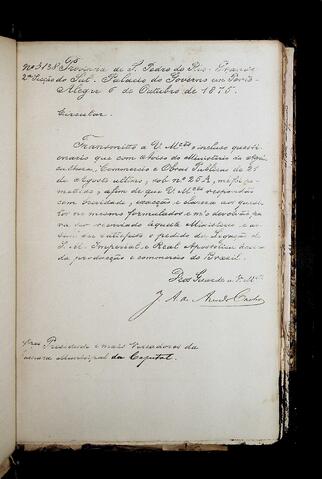 Nº 3138 Provincia de S. Pedro do Rio-Grande
2ª Secção do Sul. Palacio do Governo em Porto-
Alegre 6 de Outubro de 1875.
Circular.
Transmitto a V. Mcês o incluso questi-
onario que com aviso do Ministerio da Agri-
cultura, Commercio e Obras Publicas de 21
de Agosto ultimo, sob nº 26A, me foi re-
mettido, afim de que V. Mcês respondão
com brevidade, exacção e clareza aos quesi-
tos no mesmo formulados e m'o devolvão, pa-
ra ser reenviado áquelle Ministerio e as-
sim ser satisfeito o pedido da Legação de
S. M. Imperial e Real Apostolica ácerca
da producção e commercio do Brazil.
Deos Guarde a V. Mcês
J. A. de Azevedo Castro
Presidente e mais Vereadores da
Camara Municipal da Capital.